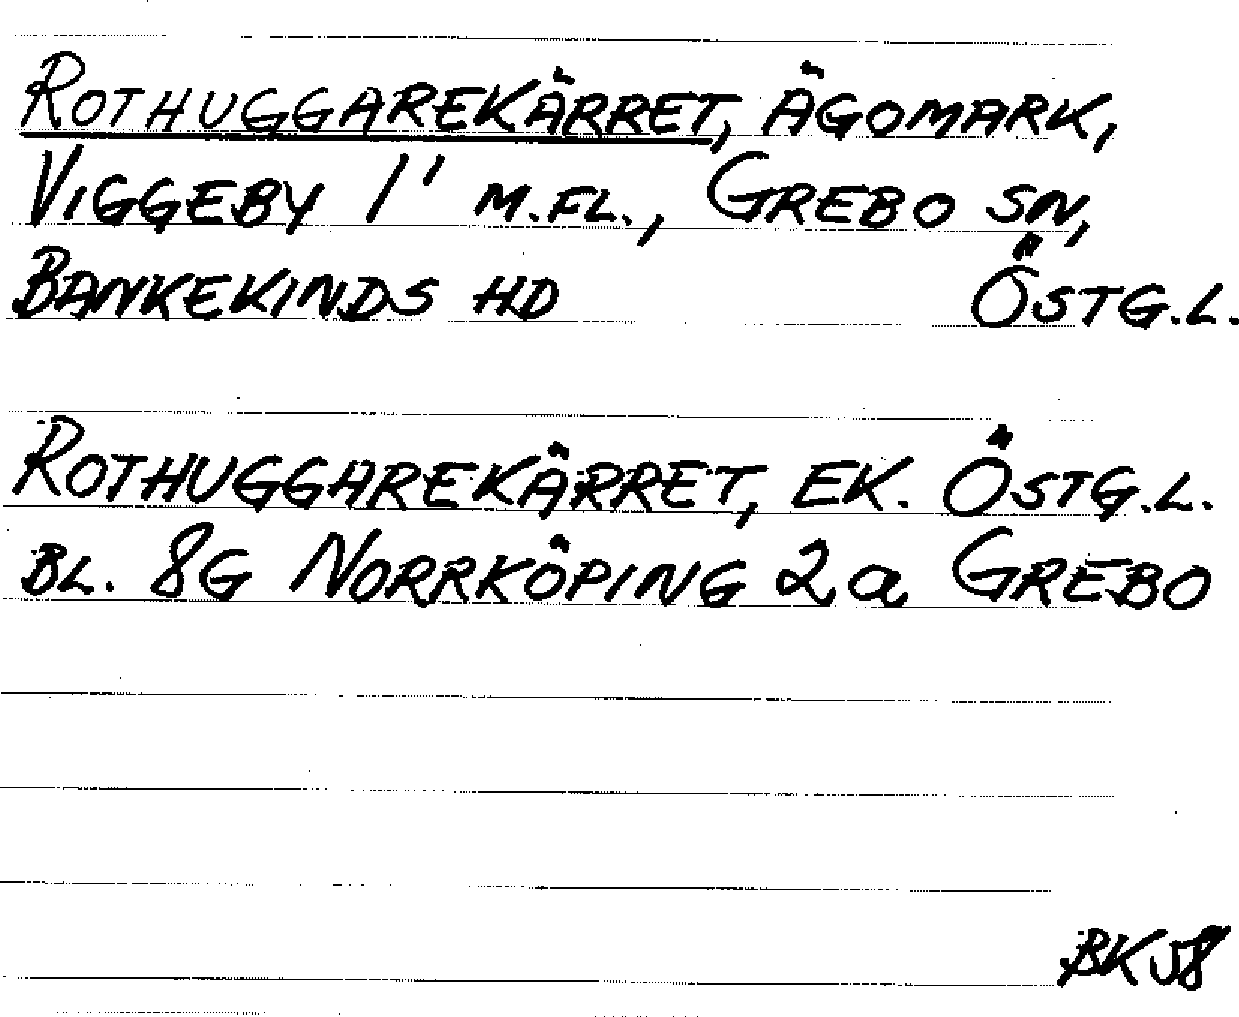 ROTHUGGAREKÄRRET, ÄGOMARK,
VIGGEBY 1' M.FL., GREBO SN,
BANKEKINDS HD ÖSTG.L.
ROTHUGGAREKÄRRET, EK. ÖSTG.L.
BL. 8G NORRKÖPING 2a GREBO
BK 58